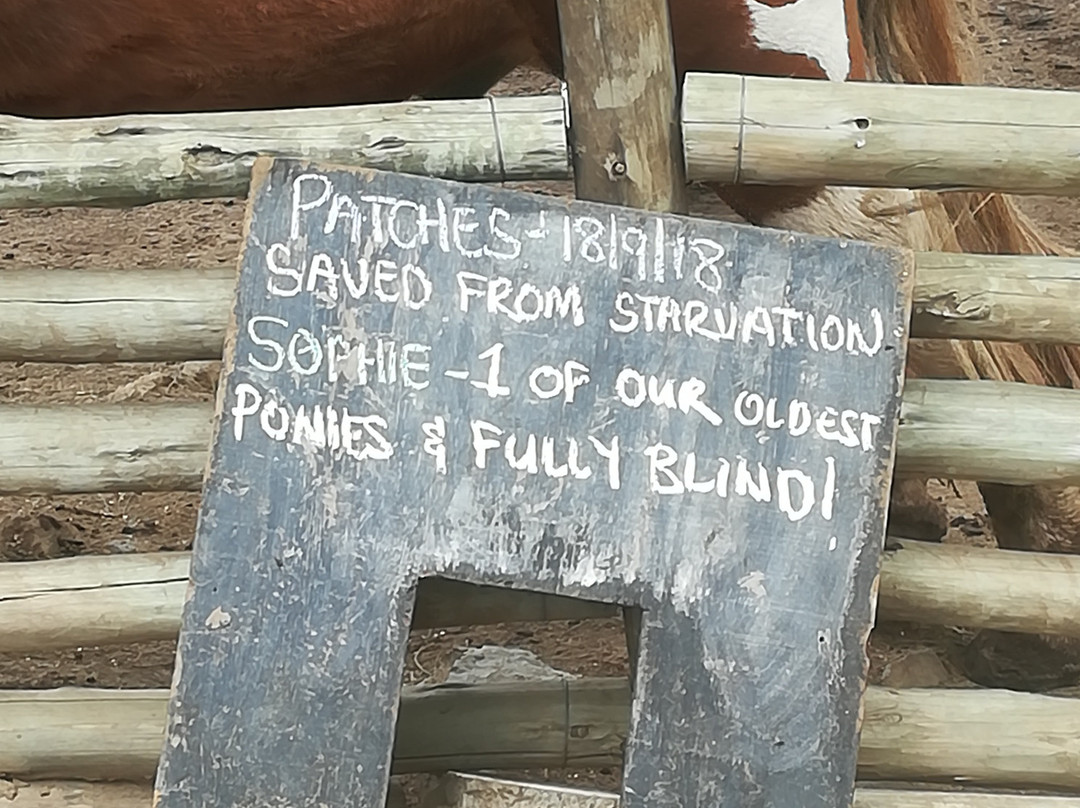 PATCHES-18/9/18
SAVED FROM STARVATION.
SOPHIE -1 OF OUR OLDEST
PONIES & FULLY BLIND!